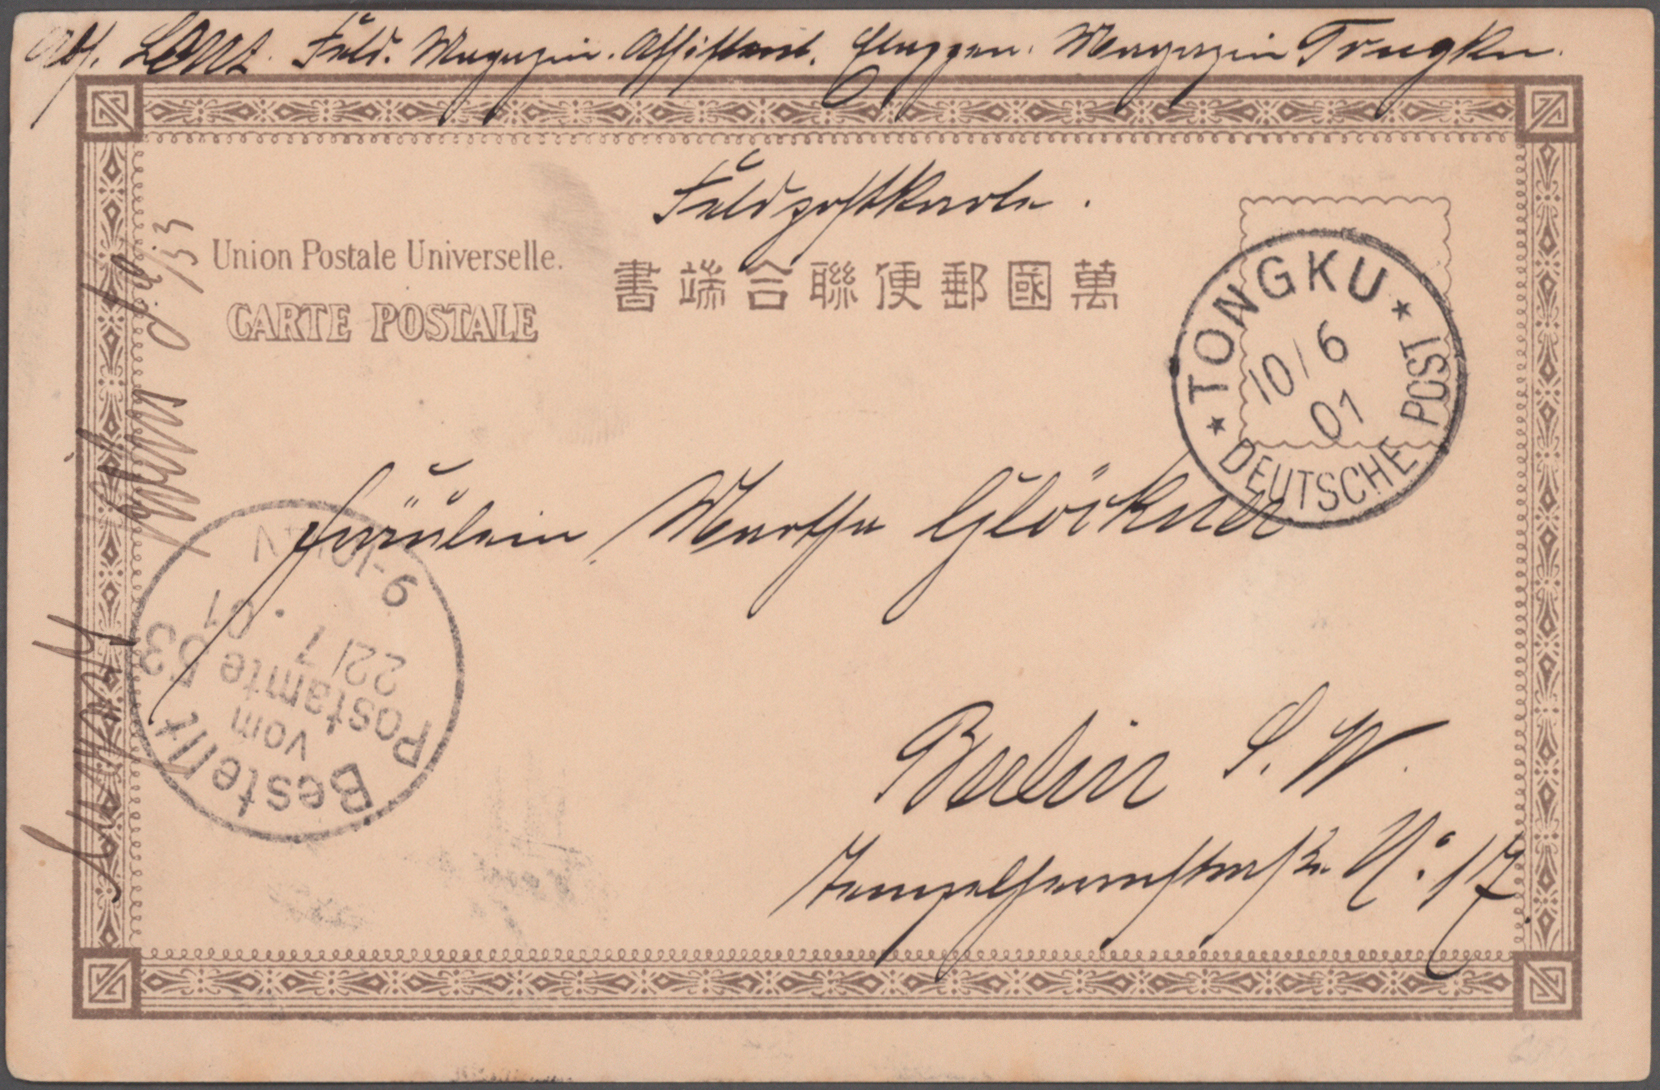 Abs. Lenz. Feld. Magazin. Assistent. Etappen. Magazin Tongku.
Feldpostkarte.
Union Postale Universelle.
CARTE POSTALE
書端合聯便郵國萬
TONGKU
10/6
01
DEUTSCHE POST
Fräulein Martha Glöckner
Berlin S. W.
Tempelherrnstraße No. 17.
Bestellt
vom
Postamte 53
22/7
01
9-10